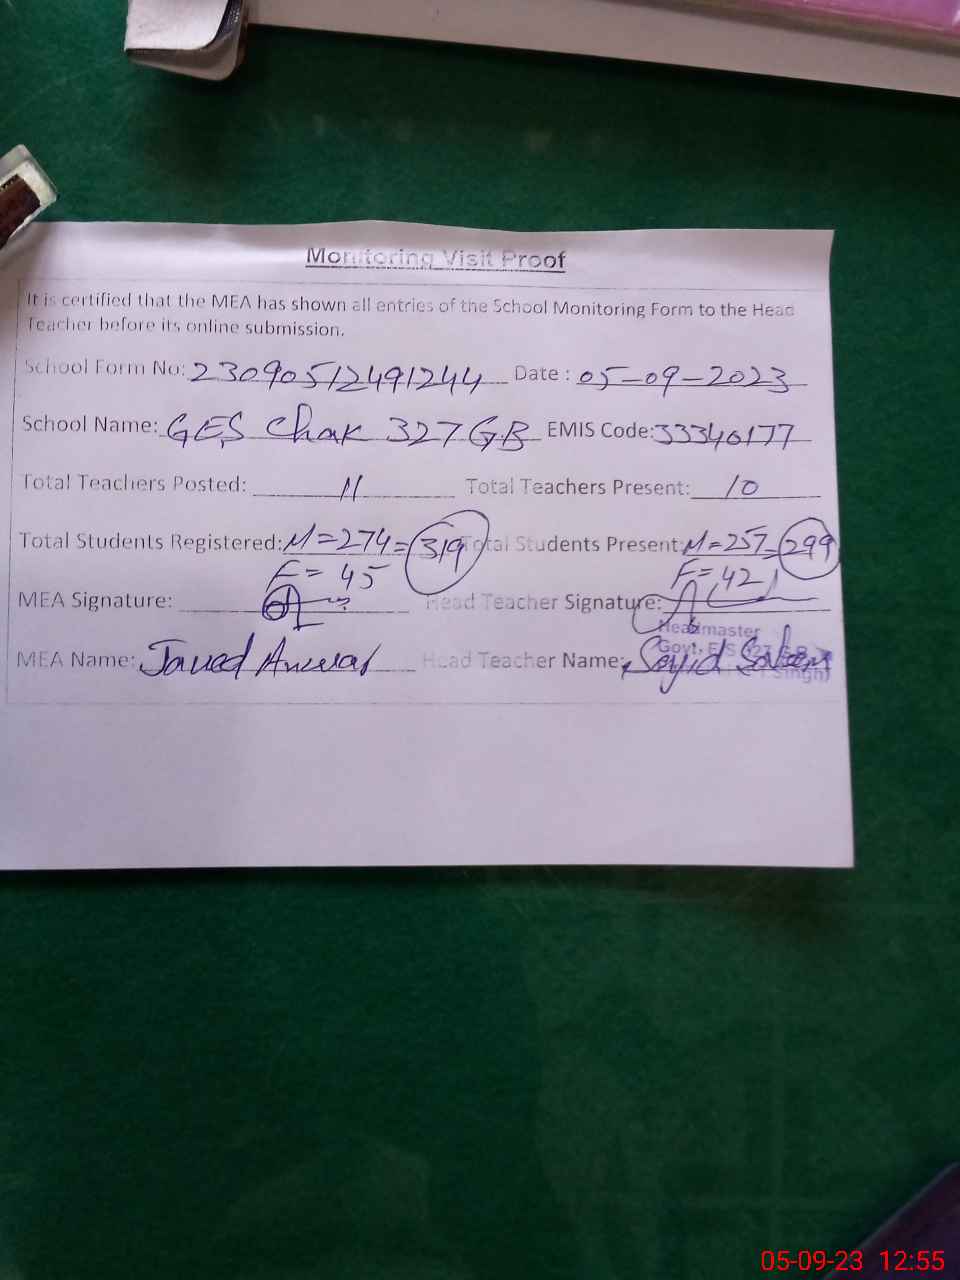 Monitoring Visit Proof
It is certified that the MEA has shown all entries of the School Monitoring Form to the Head
Teacher before its online submission.
School Form No: 23090512491244 Date : 05-09-2023
School Name: GES Chak 327 GB EMIS Code: 33340177
Total Teachers Posted: 11 Total Teachers Present: 10
Total Students Registered: M=274 = 319 Total Students Present: M=257 = 299
F= 45 F= 42
MEA Signature: Head Teacher Signature:
Headmaster
Govt. E/S
MEA Name: Javed Anwar Head Teacher Name: Sajid Saleem
Singh)
05-09-23 12:55